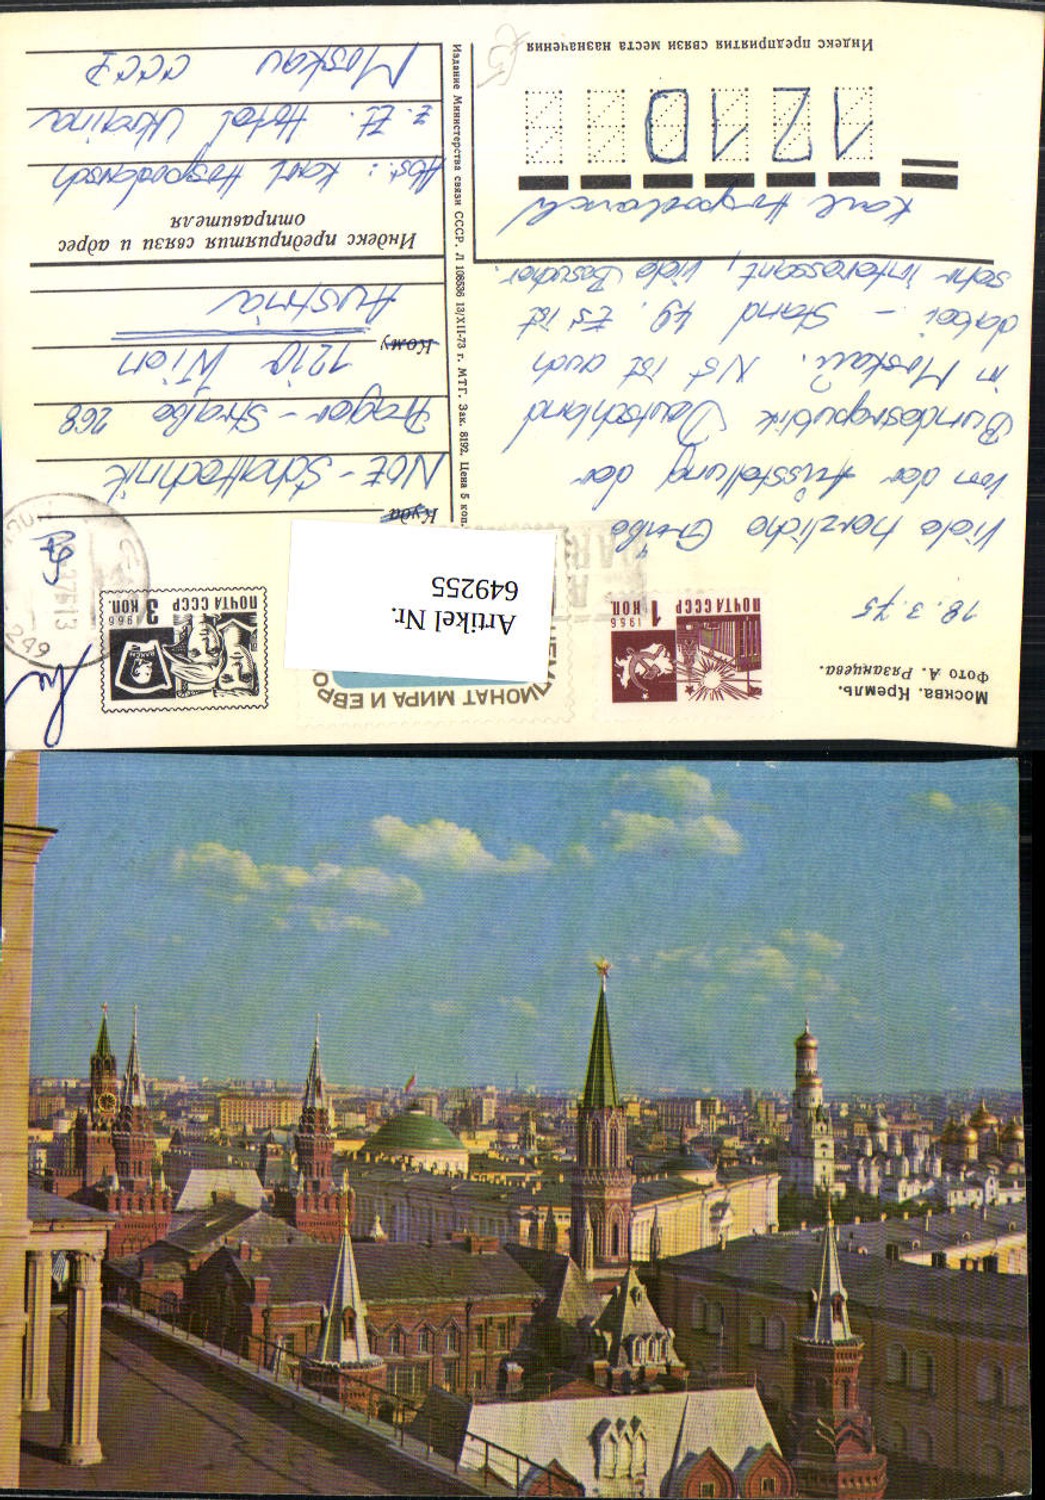 Москва. Кремль.
Фото А. Рязанцева.
18.3.75
Viele herzliche Grüße
von der Ausstellung der
Bundesrepublik Deutschland
in Moskau. NSt ist auch
dabei – Stand 49. Es ist
sehr interessant, viele Besucher.
Karl Hospodarsch
1210
Индекс предприятия связи места назначения
ПОЧТА СССР 1966 1 КОП.
ЧЕМПИОНАТ МИРА И ЕВРО
Artikel Nr.
649255
ПОЧТА СССР 1966 3 КОП.
Издание Министерства связи СССР. Л 108536 13/XII-73 г. МТГ. Зак. 8192. Цена 5 коп.
Куда
NOE-Schalttechnik
Prager-Straße 268
1210 Wien
Кому
Austria
Индекс предприятия связи и адрес
отправителя
Abs.: Karl Hospodarsch
z. Zt. Hotel Ukraina
Moskau CCCP